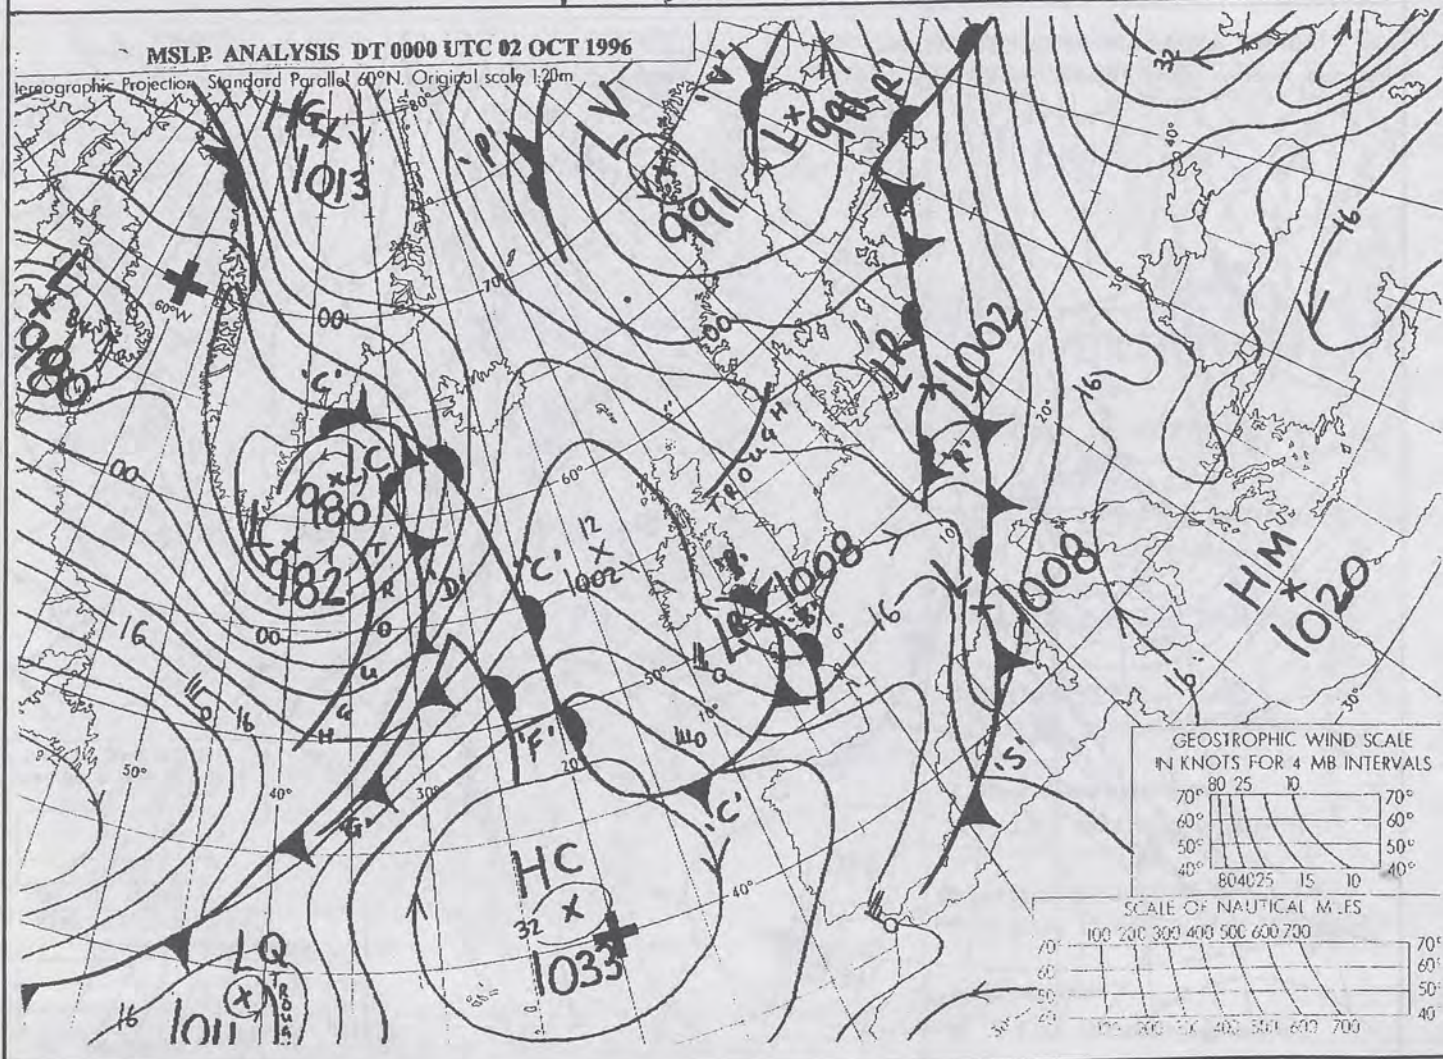 MSLP ANALYSIS DT 0000 UTC 02 OCT 1996
tereographic Projection Standard Parallel 60°N. Original scale 1:20m
32
80°
HG
1013
'P'
LV
991
'V'
L
991
'R'
40°
16
L
980
60°W
70°
00
00
30°
LR
1002
16
20°
'C'
00
LC
980
L
982
60°
TROUGH
'R'
12
1002
'C'
10°
'D'
TROUGH
'B'
LB
1008
'B'
0°
16
L
1008
HM
1020
16
16
00
16
50°
10°
50°
40°
30°
20°
30°
'F'
'G'
'C'
'S'
HC
32
1033
40°
LQ
1011
TROUGH
16
GEOSTROPHIC WIND SCALE
IN KNOTS FOR 4 MB INTERVALS
80 25 10
70° 70°
60° 60°
50° 50°
40° 40°
80 40 25 15 10
SCALE OF NAUTICAL MILES
100 200 300 400 500 600 700
70° 70°
60 60°
50 50°
40 40°
100 200 300 400 500 600 700